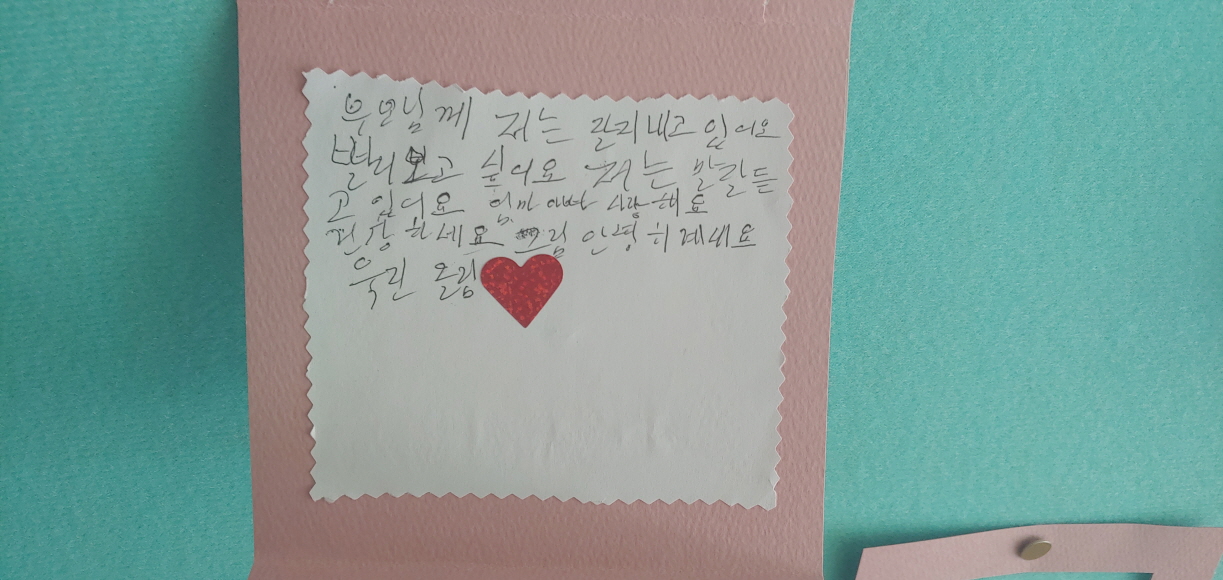 부모님께 저는 잘지내고 있어요
빨리보고 싶어요 저는 말잘듣
고 있어요 엄마 아빠 사랑해요
건강하세요 그럼 안녕히계세요
욱진 올림